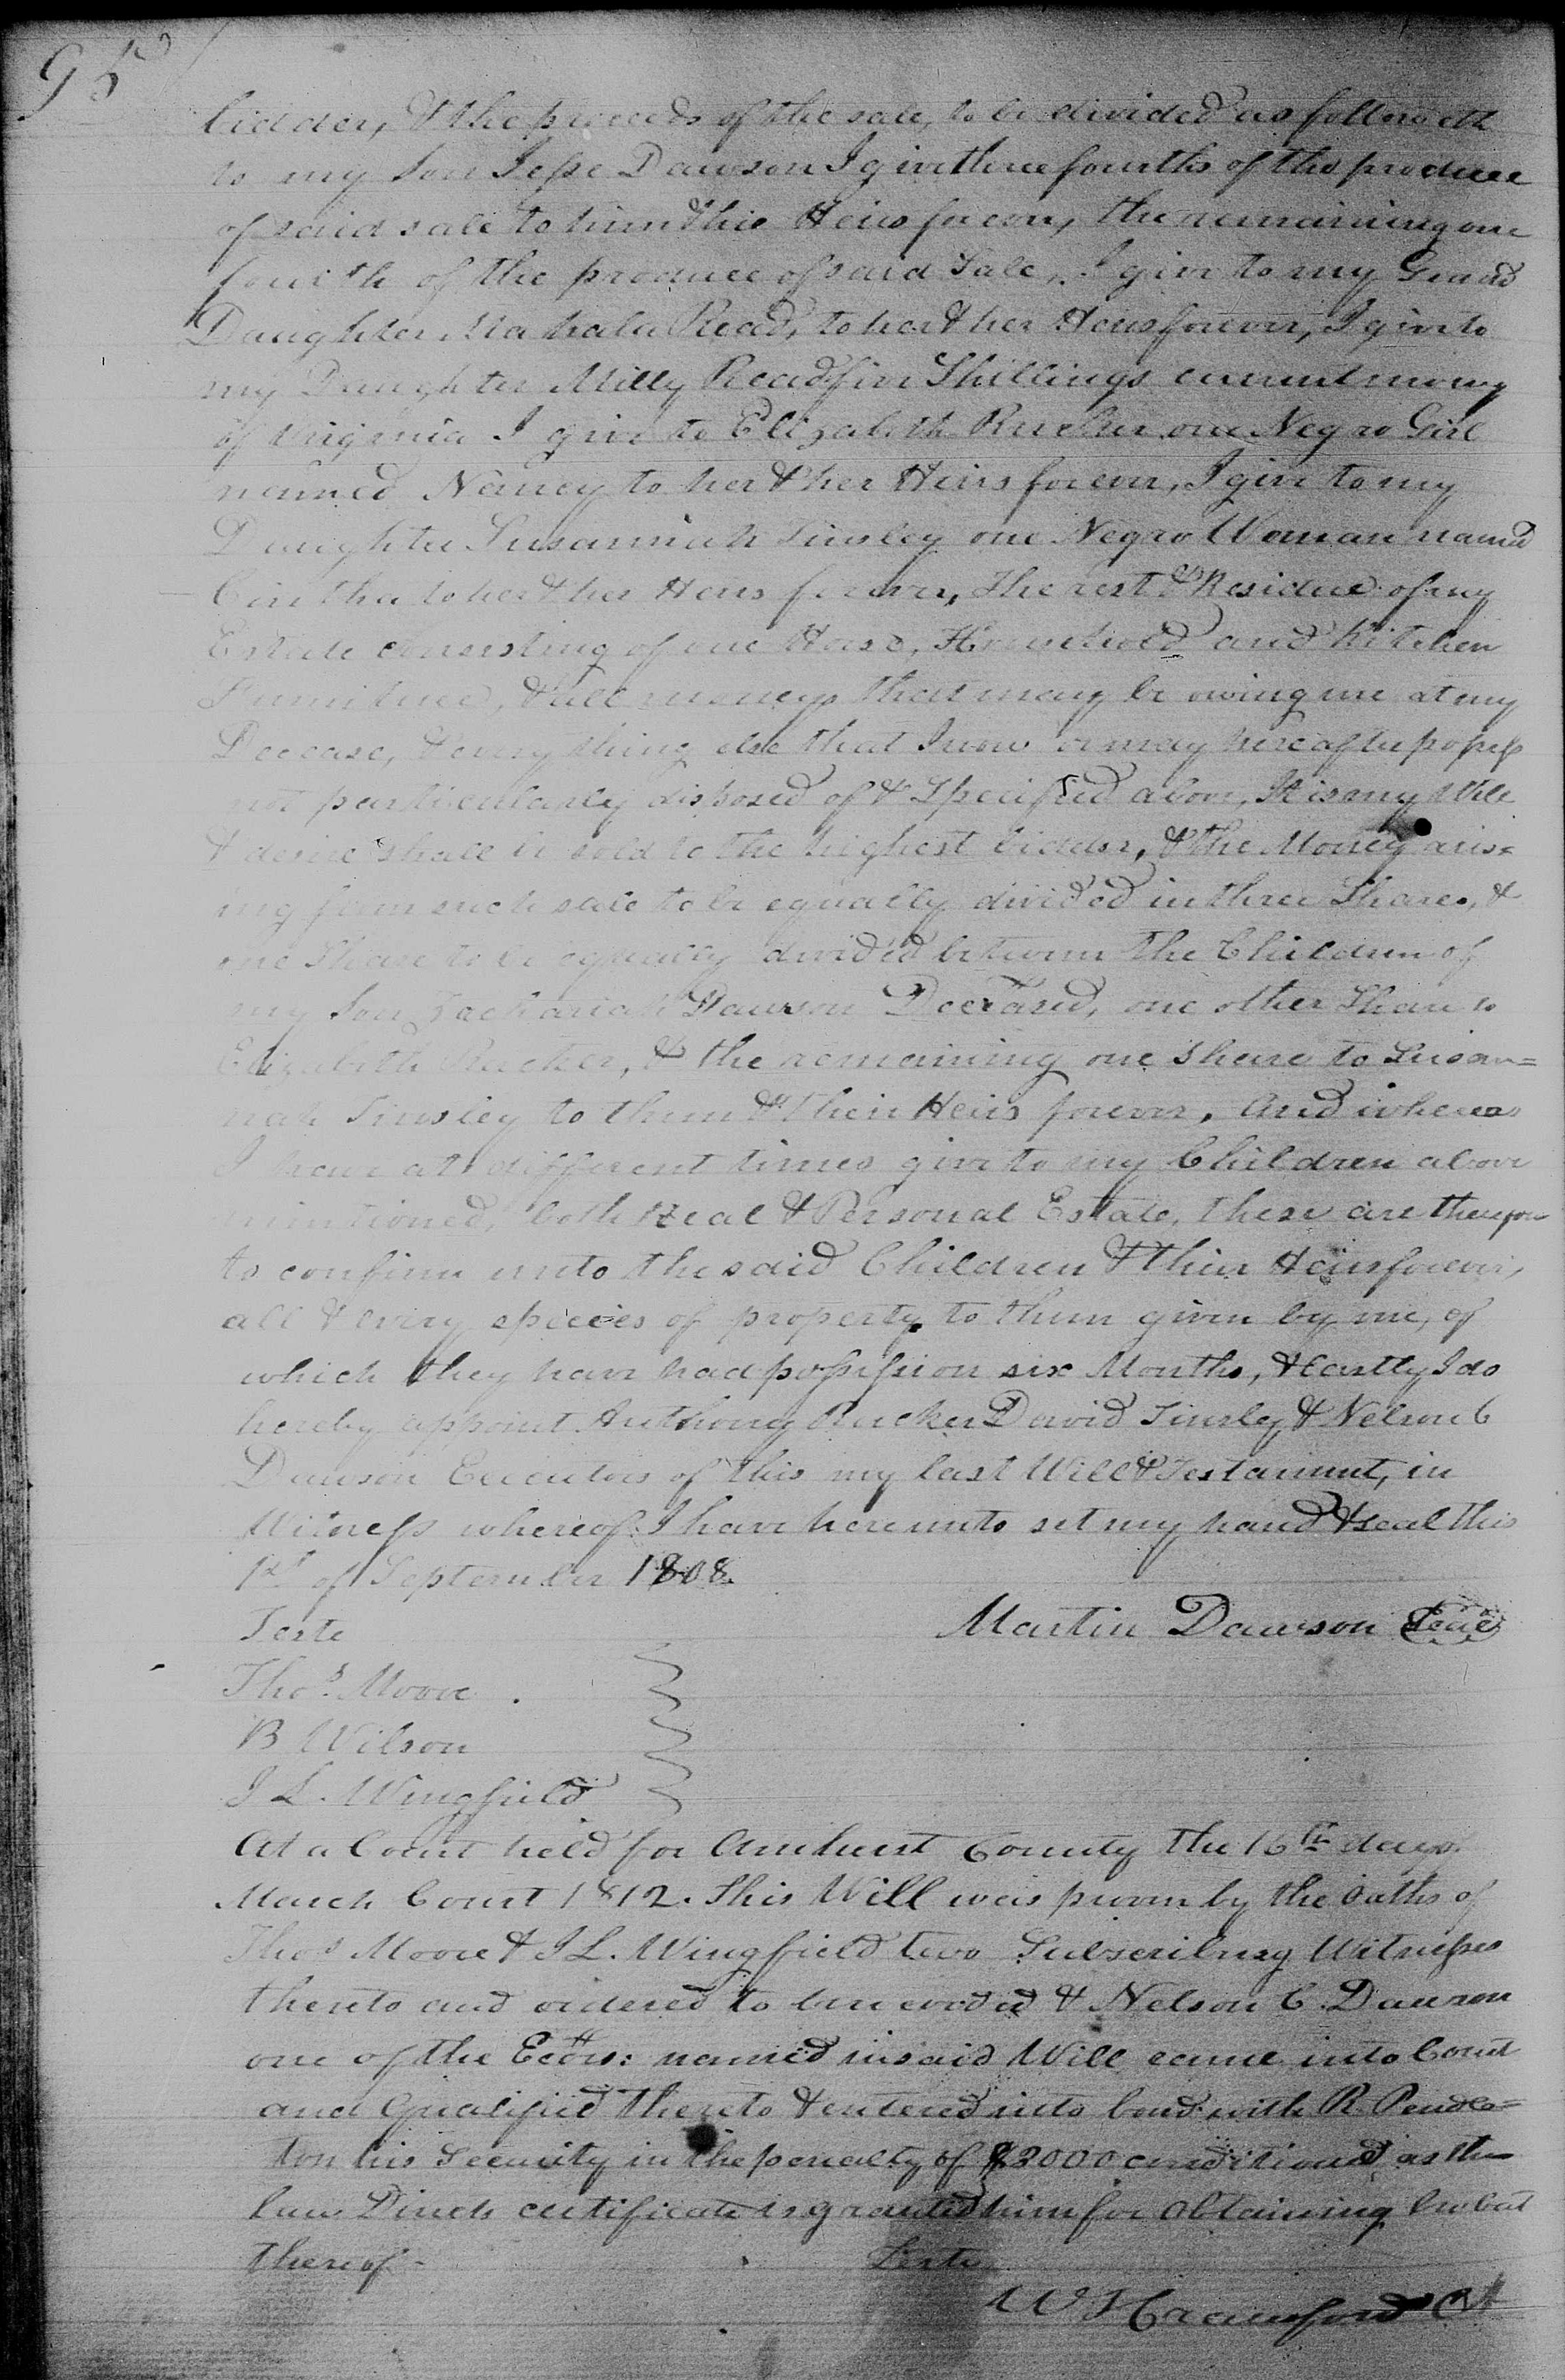 95
bidder, & the proceeds of the sale, to be divided as followeth
to my Son Jesse Dawson I give three fourths of the produce
of said sale to him & his Heirs forever, the remaining one
fourth of the produce of said Sale, I give to my Grand
Daughter Mahala Read, to her & her Heirs forever, I give to
my Daughter Milly Read five Shillings current money
of Virginia I give to Elizabeth Rucker one Negro Girl
named Nancy to her & her Heirs forever, I give to my
Daughter Susannah Tinsley one Negro Woman named
Cintha to her & her Heirs forever, The rest & Residue of my
Estate consisting of one Horse, Household and Kitchen
Furniture, & all moneys that may be owing me at my
Decease, & every thing else that I now or may hereafter possess
not particularly disposed of & Specified above, It is my Will
& desire shall be sold to the highest bidder, & the Money aris=
ing from such sale to be equally divided in three Shares, &
one Share to be equally divided between the Children of
my Son Zachariah Dawson Deceased, one other Share to
Elizabeth Rucker, & the remaining one Share to Susan=
nah Tinsley to them & their Heirs forever, And whereas
I have at different times give to my Children above
mentioned, both Real & Personal Estate, these are therefore
to confirm unto the said Children & their Heirs forever,
all & every species of property to them given by me, of
which they have had possession six Months, & Lastly I do
hereby appoint Anthony Rucker David Tinsley & Nelson C
Dawson Executors of this my last Will & Testament, in
Witness whereof I have hereunto set my hand & seal this
1st of September 1808.
Martin Dawson Seal
Teste
Thos. Moore
B Wilson
J L. Wingfield
At a Court held for Amherst County the 16th day of
March Court 1812. This Will was proven by the Oaths of
Thos Moore & J L. Wingfield two Subscribing Witnesses
thereto and ordered to be recorded & Nelson C. Dawson
one of the Exors: named in said Will came into Court
and Qualified thereto & entered into bond with R. Pendle=
ton his Security in the penalty of $2000 conditioned as the
law Directs certificate is granted him for obtaining Probat
thereof-
Teste
W S Crawford Clk